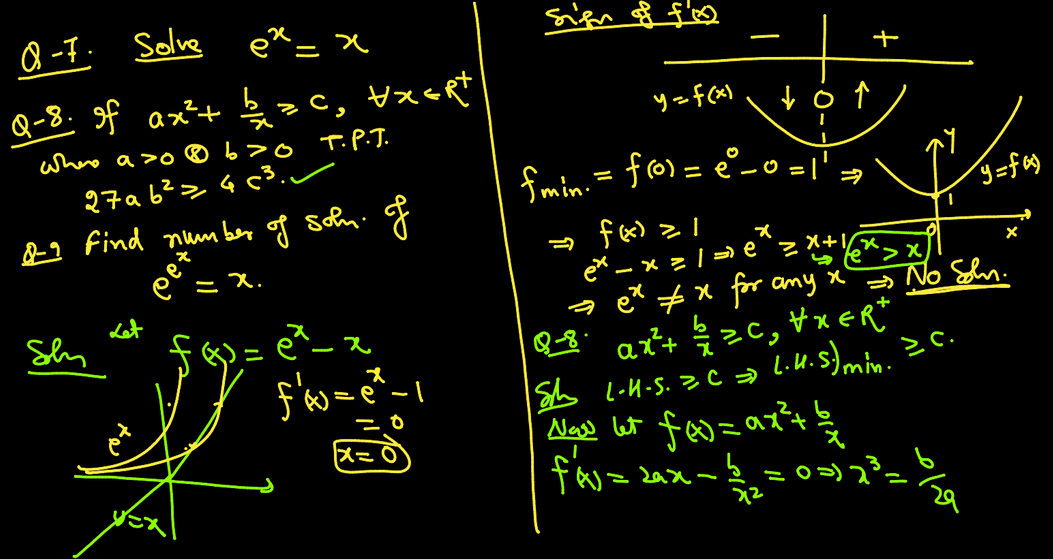 Q-7. Solve e^x = x
Q-8. If ax² + b/x ≥ c, ∀ x ∈ R⁺
where a>0 & b>0 T.P.T.
27ab² ≥ 4c³. ✓
Q-9 Find number of soln. of
e^{e^x} = x.
Soln Let f(x) = e^x - x
f'(x) = e^x - 1
= 0
x = 0
e^x
y=x
Sign of f'(x)
− +
y = f(x) ↓ 0 ↑
f min. = f(0) = e⁰ - 0 = 1 ⇒
y
y = f(x)
1
0
x
⇒ f(x) ≥ 1
e^x - x ≥ 1 ⇒ e^x ≥ x+1 → e^x > x
⇒ e^x ≠ x for any x ⇒ No Soln.
Q-8. ax² + b/x ≥ c, ∀ x ∈ R⁺
Sh L.H.S. ≥ c ⇒ L.H.S.)min. ≥ c.
Now let f(x) = ax² + b/x
f'(x) = 2ax - b/x² = 0 ⇒ x³ = b/2a